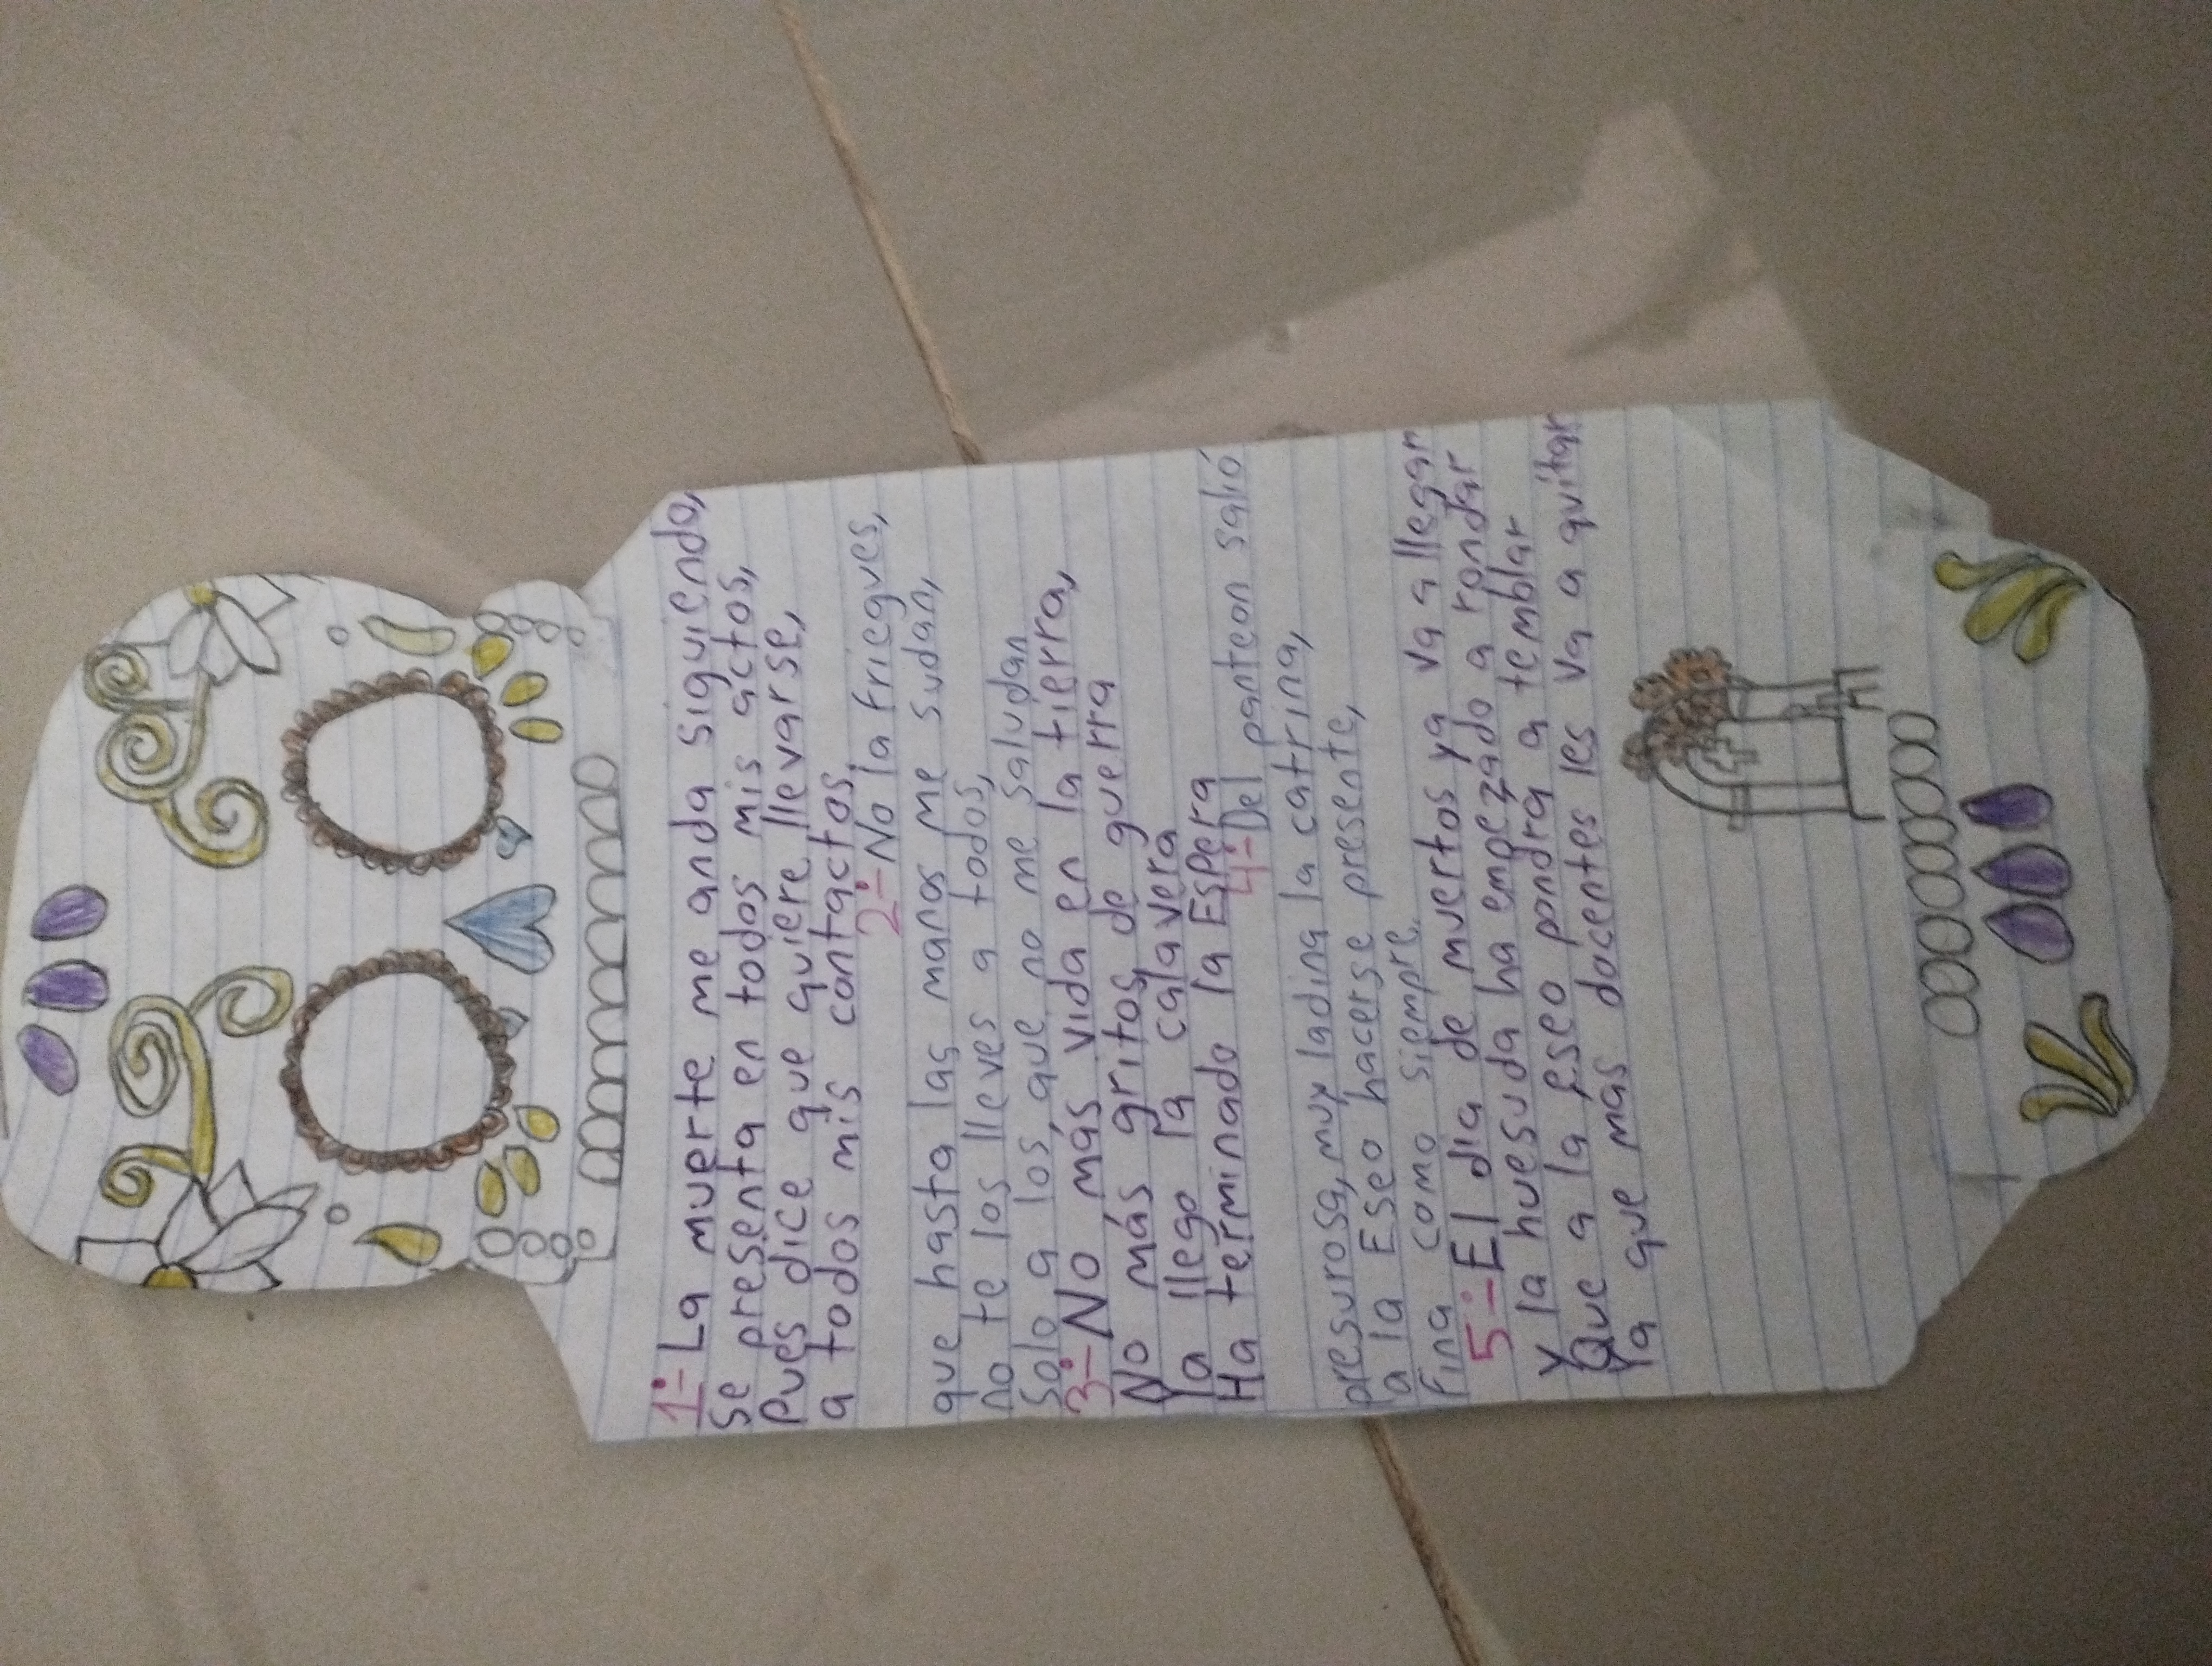 1.- La muerte me anda siguiendo,
se presenta en todos mis actos,
pues dice que quiere llevarse,
a todos mis contactos.
2.- No la friegues,
que hasta las manos me sudan,
no te los lleves a todos,
solo a los que no me saludan
3.- No más vida en la tierra,
No más gritos de guerra
Ya llego la calavera
Ha terminado la Espera
4.- Del panteon salió
presurosa, muy ladina la catrina,
a la Eseo hacerse presente,
fina como siempre.
5.- El dia de muertos ya va a llegar
Y la huesuda ha empezado a rondar
Que a la Eseo pondra a temblar
Ya que más docentes les va a quitar